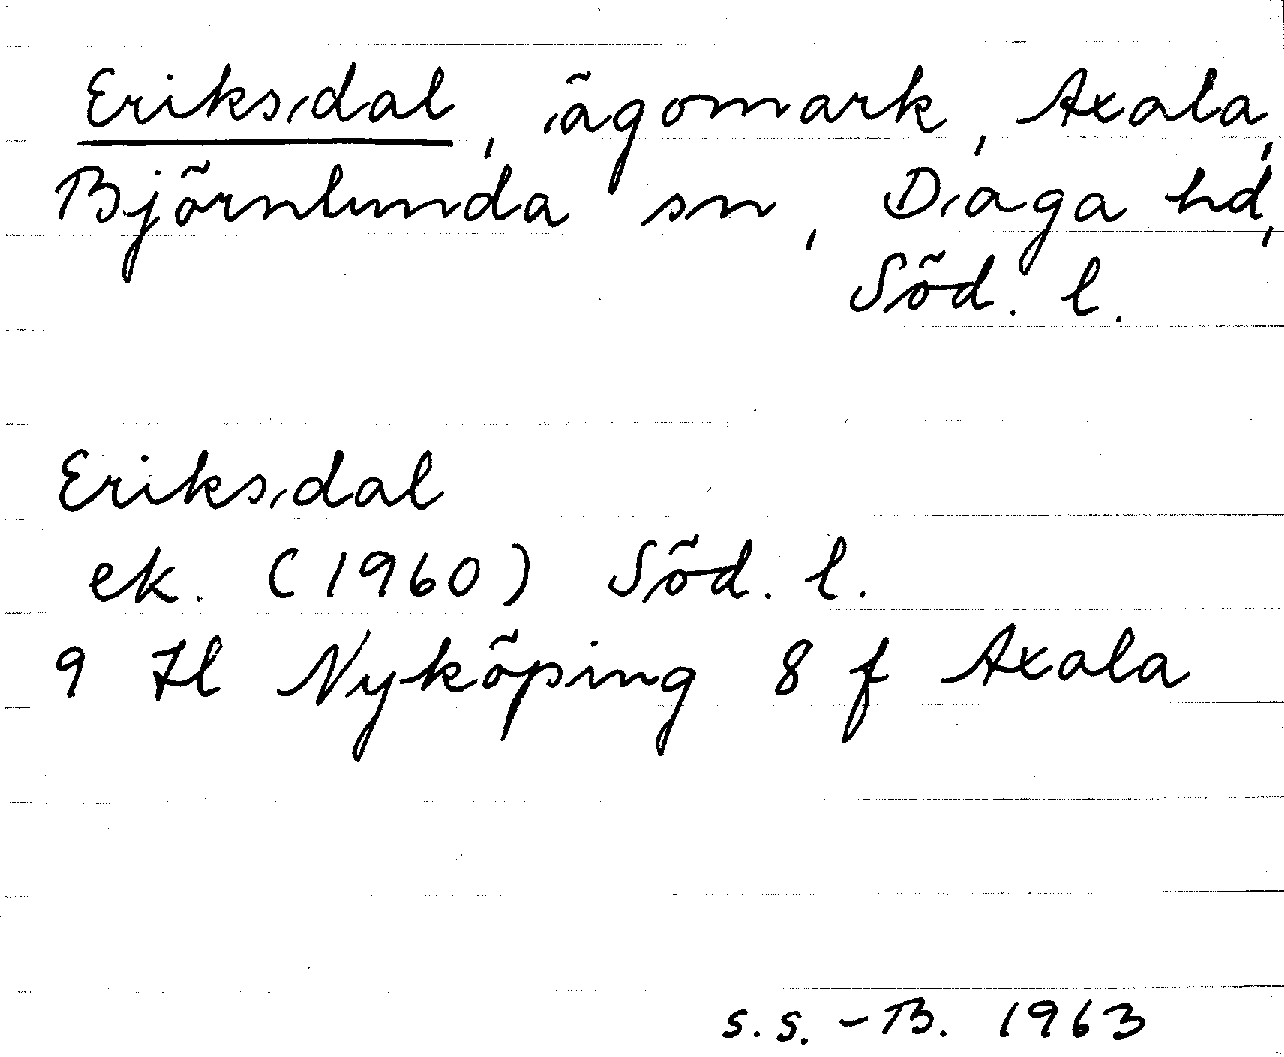 Eriksdal, ägomark, Axala,
Björnlunda sn, Daga hd,
Söd. l.
Eriksdal
ek. (1960) Söd. l.
9 H Nyköping 8 f Axala
S.S.-B. 1963